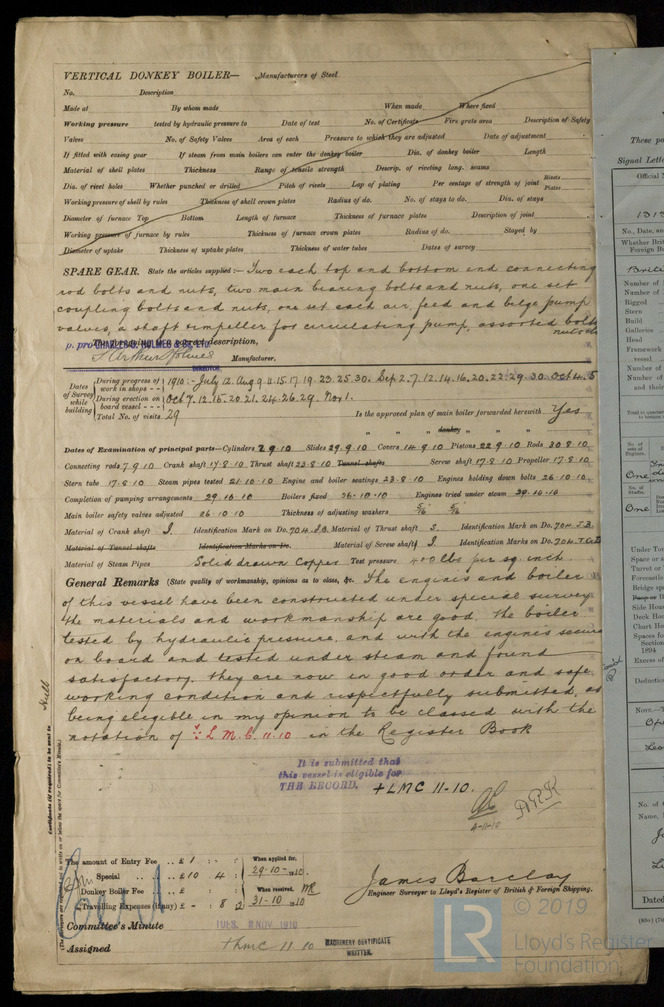 VERTICAL DONKEY BOILER— Manufacturers of Steel.
No. Description
Made at By whom made When made Where fixed
Working pressure tested by hydraulic pressure to Date of test No. of Certificate Fire grate area Description of Safety
Valves No. of Safety Valves Area of each Pressure to which they are adjusted Date of adjustment
If fitted with easing gear If steam from main boilers can enter the donkey boiler Dia. of donkey boiler Length
Material of shell plates Thickness Range of tensile strength Descrip. of riveting long. seams
Dia. of rivet holes Whether punched or drilled Pitch of rivets Lap of plating Per centage of strength of joint Rivets Plates
Working pressure of shell by rules Thickness of shell crown plates Radius of do. No. of stays to do. Dia. of stays
Diameter of furnace Top Bottom Length of furnace Thickness of furnace plates Description of joint
Working pressure of furnace by rules Thickness of furnace crown plates Radius of do. Stayed by
Diameter of uptake Thickness of uptake plates Thickness of water tubes Dates of survey
SPARE GEAR. State the articles supplied:— Two each top and bottom end connecting
rod bolts and nuts, two main bearing bolts and nuts, one set
coupling bolts and nuts, one set each air, feed and bilge pump
valves, a shaft & impeller for circulating pump, assorted bolts
nuts etc
The foregoing is a correct description,
p. pro CHARLES D. HOLMES & Co. LTD.
S Arthur Holmes Manufacturer.
DIRECTOR
Dates of Survey while building
During progress of work in shops - - 1910:- July 12. Aug 9.11.15.17.19.23.25.30. Sep 2.7.12.14.16.20.22.29.30. Oct 4.5
During erection on board vessel - - - Oct 7.12.15.20.21.24.26.29. Nov 1.
Total No. of visits 29 Is the approved plan of main boiler forwarded herewith Yes
" " " donkey " " "
Dates of Examination of principal parts—Cylinders 2.9.10 Slides 29.9.10 Covers 14.9.10 Pistons 22.9.10 Rods 30.8.10
Connecting rods 7.9.10 Crank shaft 17.8.10 Thrust shaft 23.8.10 Tunnel shafts Screw shaft 17.8.10 Propeller 17.8.10
Stern tube 17.8.10 Steam pipes tested 21.10.10 Engine and boiler seatings 23.8.10 Engines holding down bolts 26.10.10
Completion of pumping arrangements 29.10.10 Boilers fixed 26.10.10 Engines tried under steam 29.10.10
Main boiler safety valves adjusted 26.10.10 Thickness of adjusting washers
Material of Crank shaft I. Identification Mark on Do. 704 J.B. Material of Thrust shaft S. Identification Mark on Do. 704 J.B.
Material of Tunnel shafts Identification Marks on Do. Material of Screw shaft I. Identification Marks on Do.
Material of Steam Pipes Solid drawn Copper Test pressure 400 lbs per sq. inch.
General Remarks (State quality of workmanship, opinions as to class, &c. The engines and boiler
of this vessel have been constructed under special survey
the materials and workmanship are good. The boiler
tested by hydraulic pressure, and with the engines secured
on board and tested under steam and found
satisfactory. They are now in good order and safe
working condition and respectfully submitted, as
being eligible in my opinion to be classed with the
notation of L.M.C. 11.10 in the Register Book
It is submitted that
this vessel is eligible for
THE RECORD. + LMC 11-10.
4-11-10
Hull
Certificate (if required) to be sent to
The amount of Entry Fee .. £ 1 : - :
Special .. £ 10 : 4 :
Donkey Boiler Fee .. £ : :
Travelling Expenses (if any) £ - : 8
When applied for, 29-10-1910.
When received, 31-10-1910
James Barclay
Engineer Surveyor to Lloyd's Register of British & Foreign Shipping.
Committee's Minute TUES. 8 NOV 1910
Assigned + LMC 11 10
MACHINERY CERTIFICATE
WRITTEN.
© 2019
LR
Lloyd's Register
Foundation
These po
Signal Lette
Official
No., Date, an
Whether Brit
Foreign B
Britis
Number of
Number of
Rigged
Stern
Build
Galleries
Head
Framework
vessel
Number of
Number of
and their
One
One
Under Ton
Space or s
Turret or
Forecastle
Bridge sp
Side Hou
Deck Hou
Chart Ho
Spaces fo
Section
1894
Excess of
Deduction
No. of
Name,
Dated